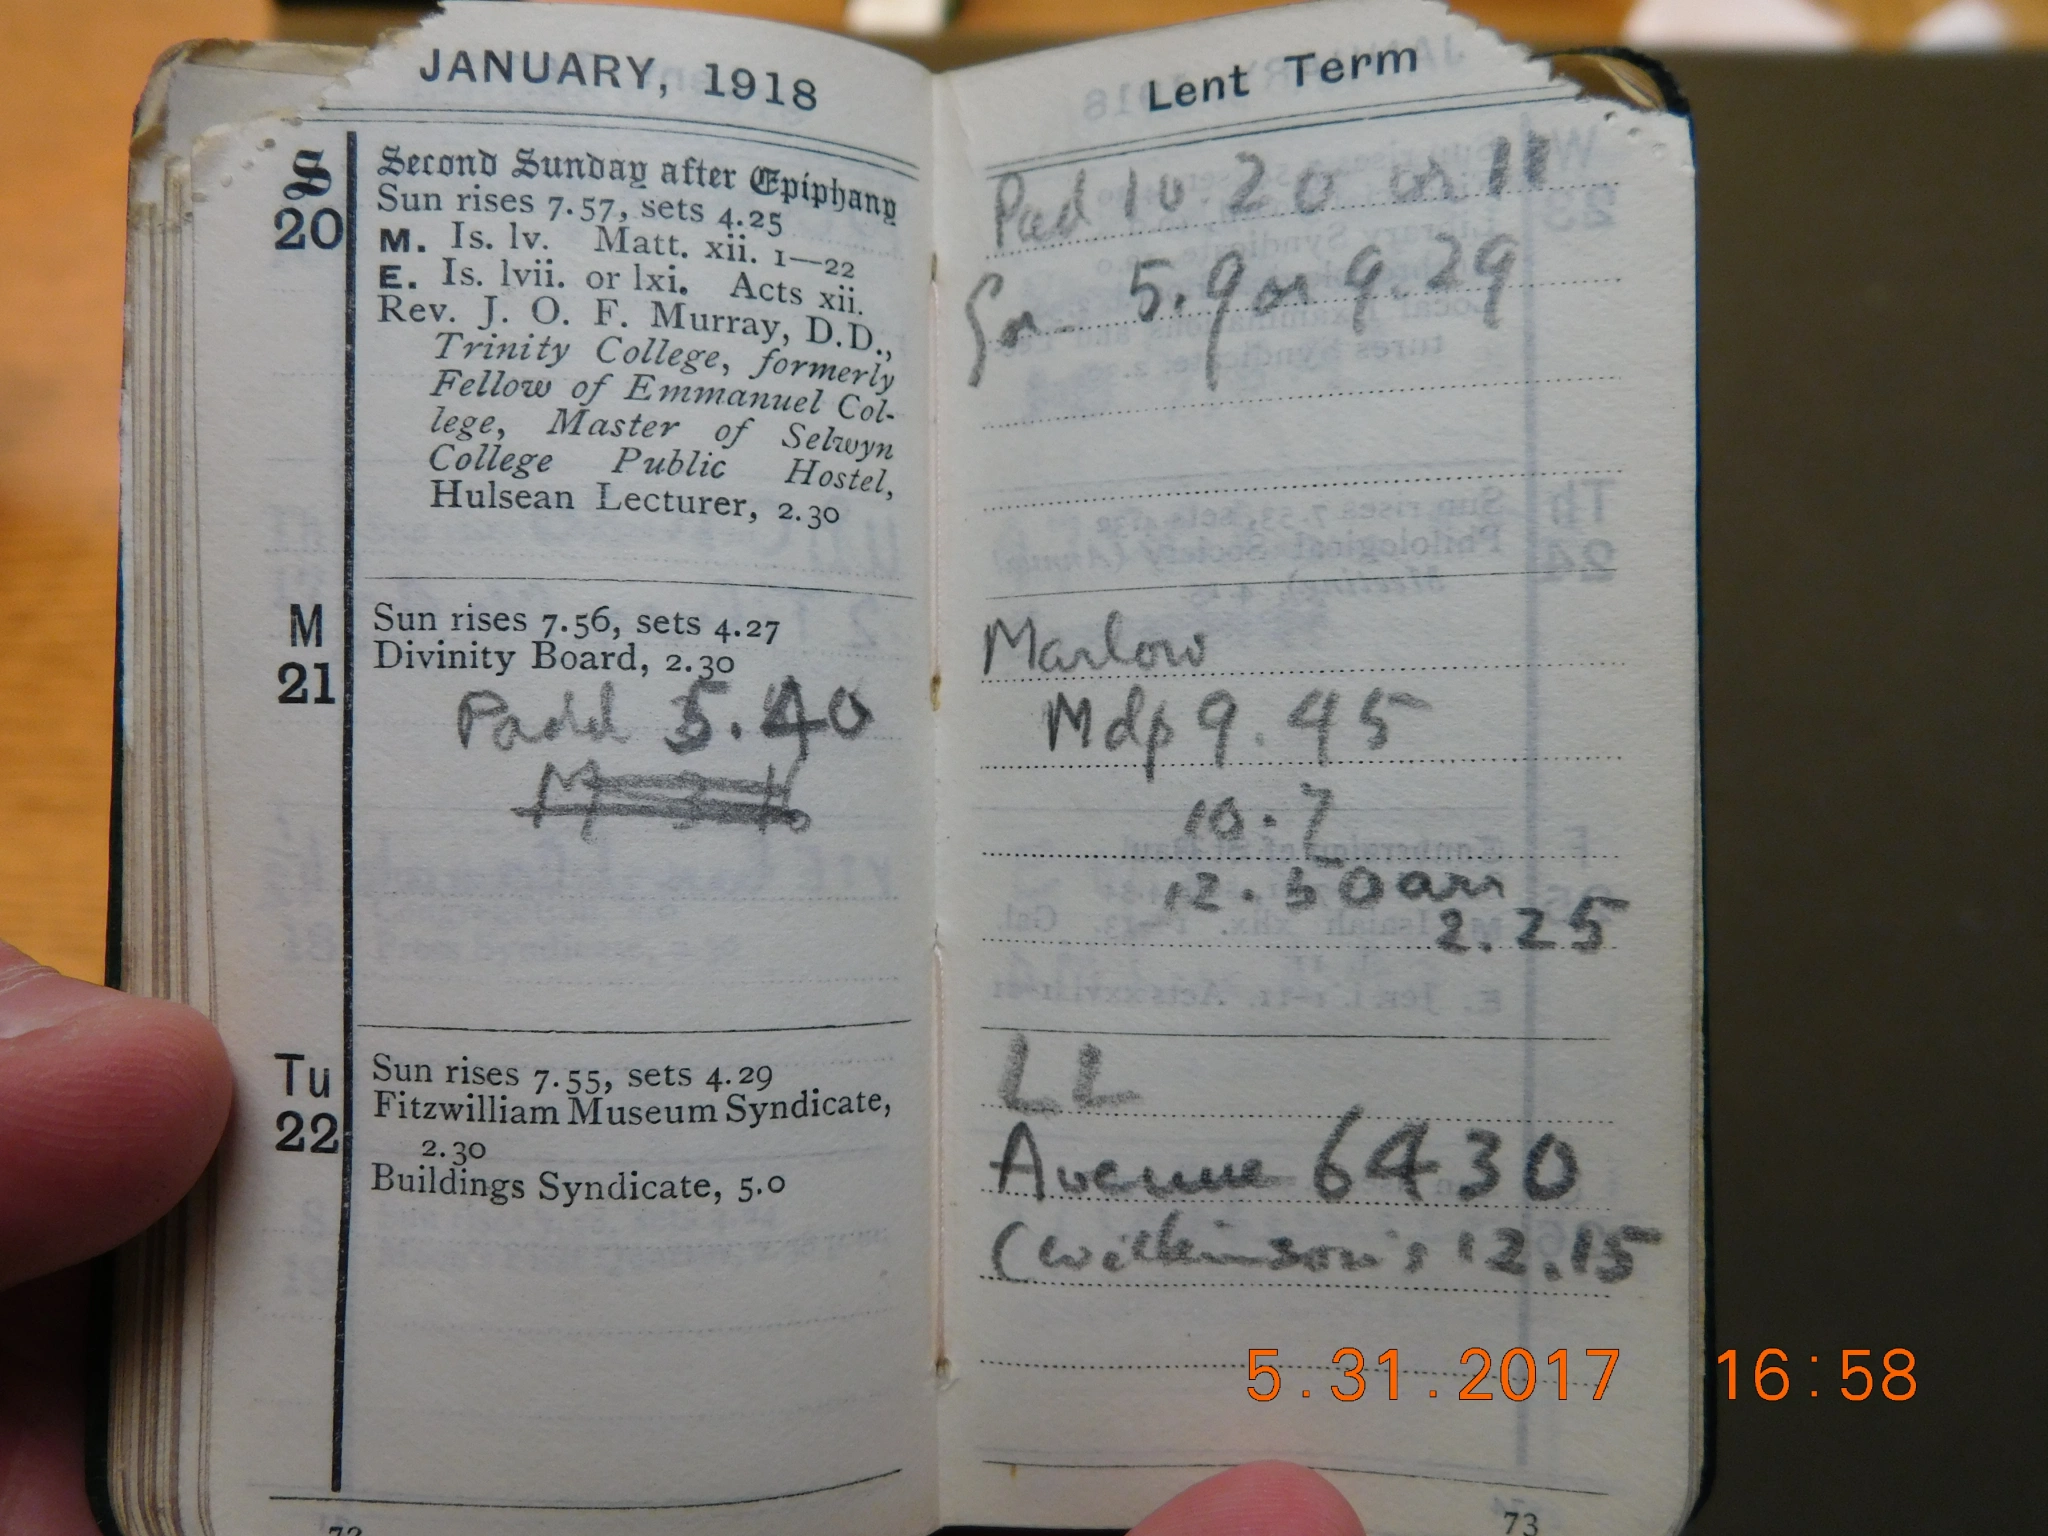 JANUARY, 1918
S
20
Second Sunday after Epiphany
Sun rises 7.57, sets 4.25
M. Is. lv. Matt. xii. 1—22
E. Is. lvii. or lxi. Acts xii.
Rev. J. O. F. Murray, D.D.,
Trinity College, formerly
Fellow of Emmanuel Col-
lege, Master of Selwyn
College Public Hostel,
Hulsean Lecturer, 2.30
M
21
Sun rises 7.56, sets 4.27
Divinity Board, 2.30
Padd 5.40
Tu
22
Sun rises 7.55, sets 4.29
Fitzwilliam Museum Syndicate,
2.30
Buildings Syndicate, 5.0
72
Lent Term
Pad 10 20 or 11
5.9 or 9.29
Marlow
Mdp 9.45
10.7
12.50 arr
2.25
LL
Avenue 6430
(Wilkinson's 12.15
73
5.31.2017 16:58